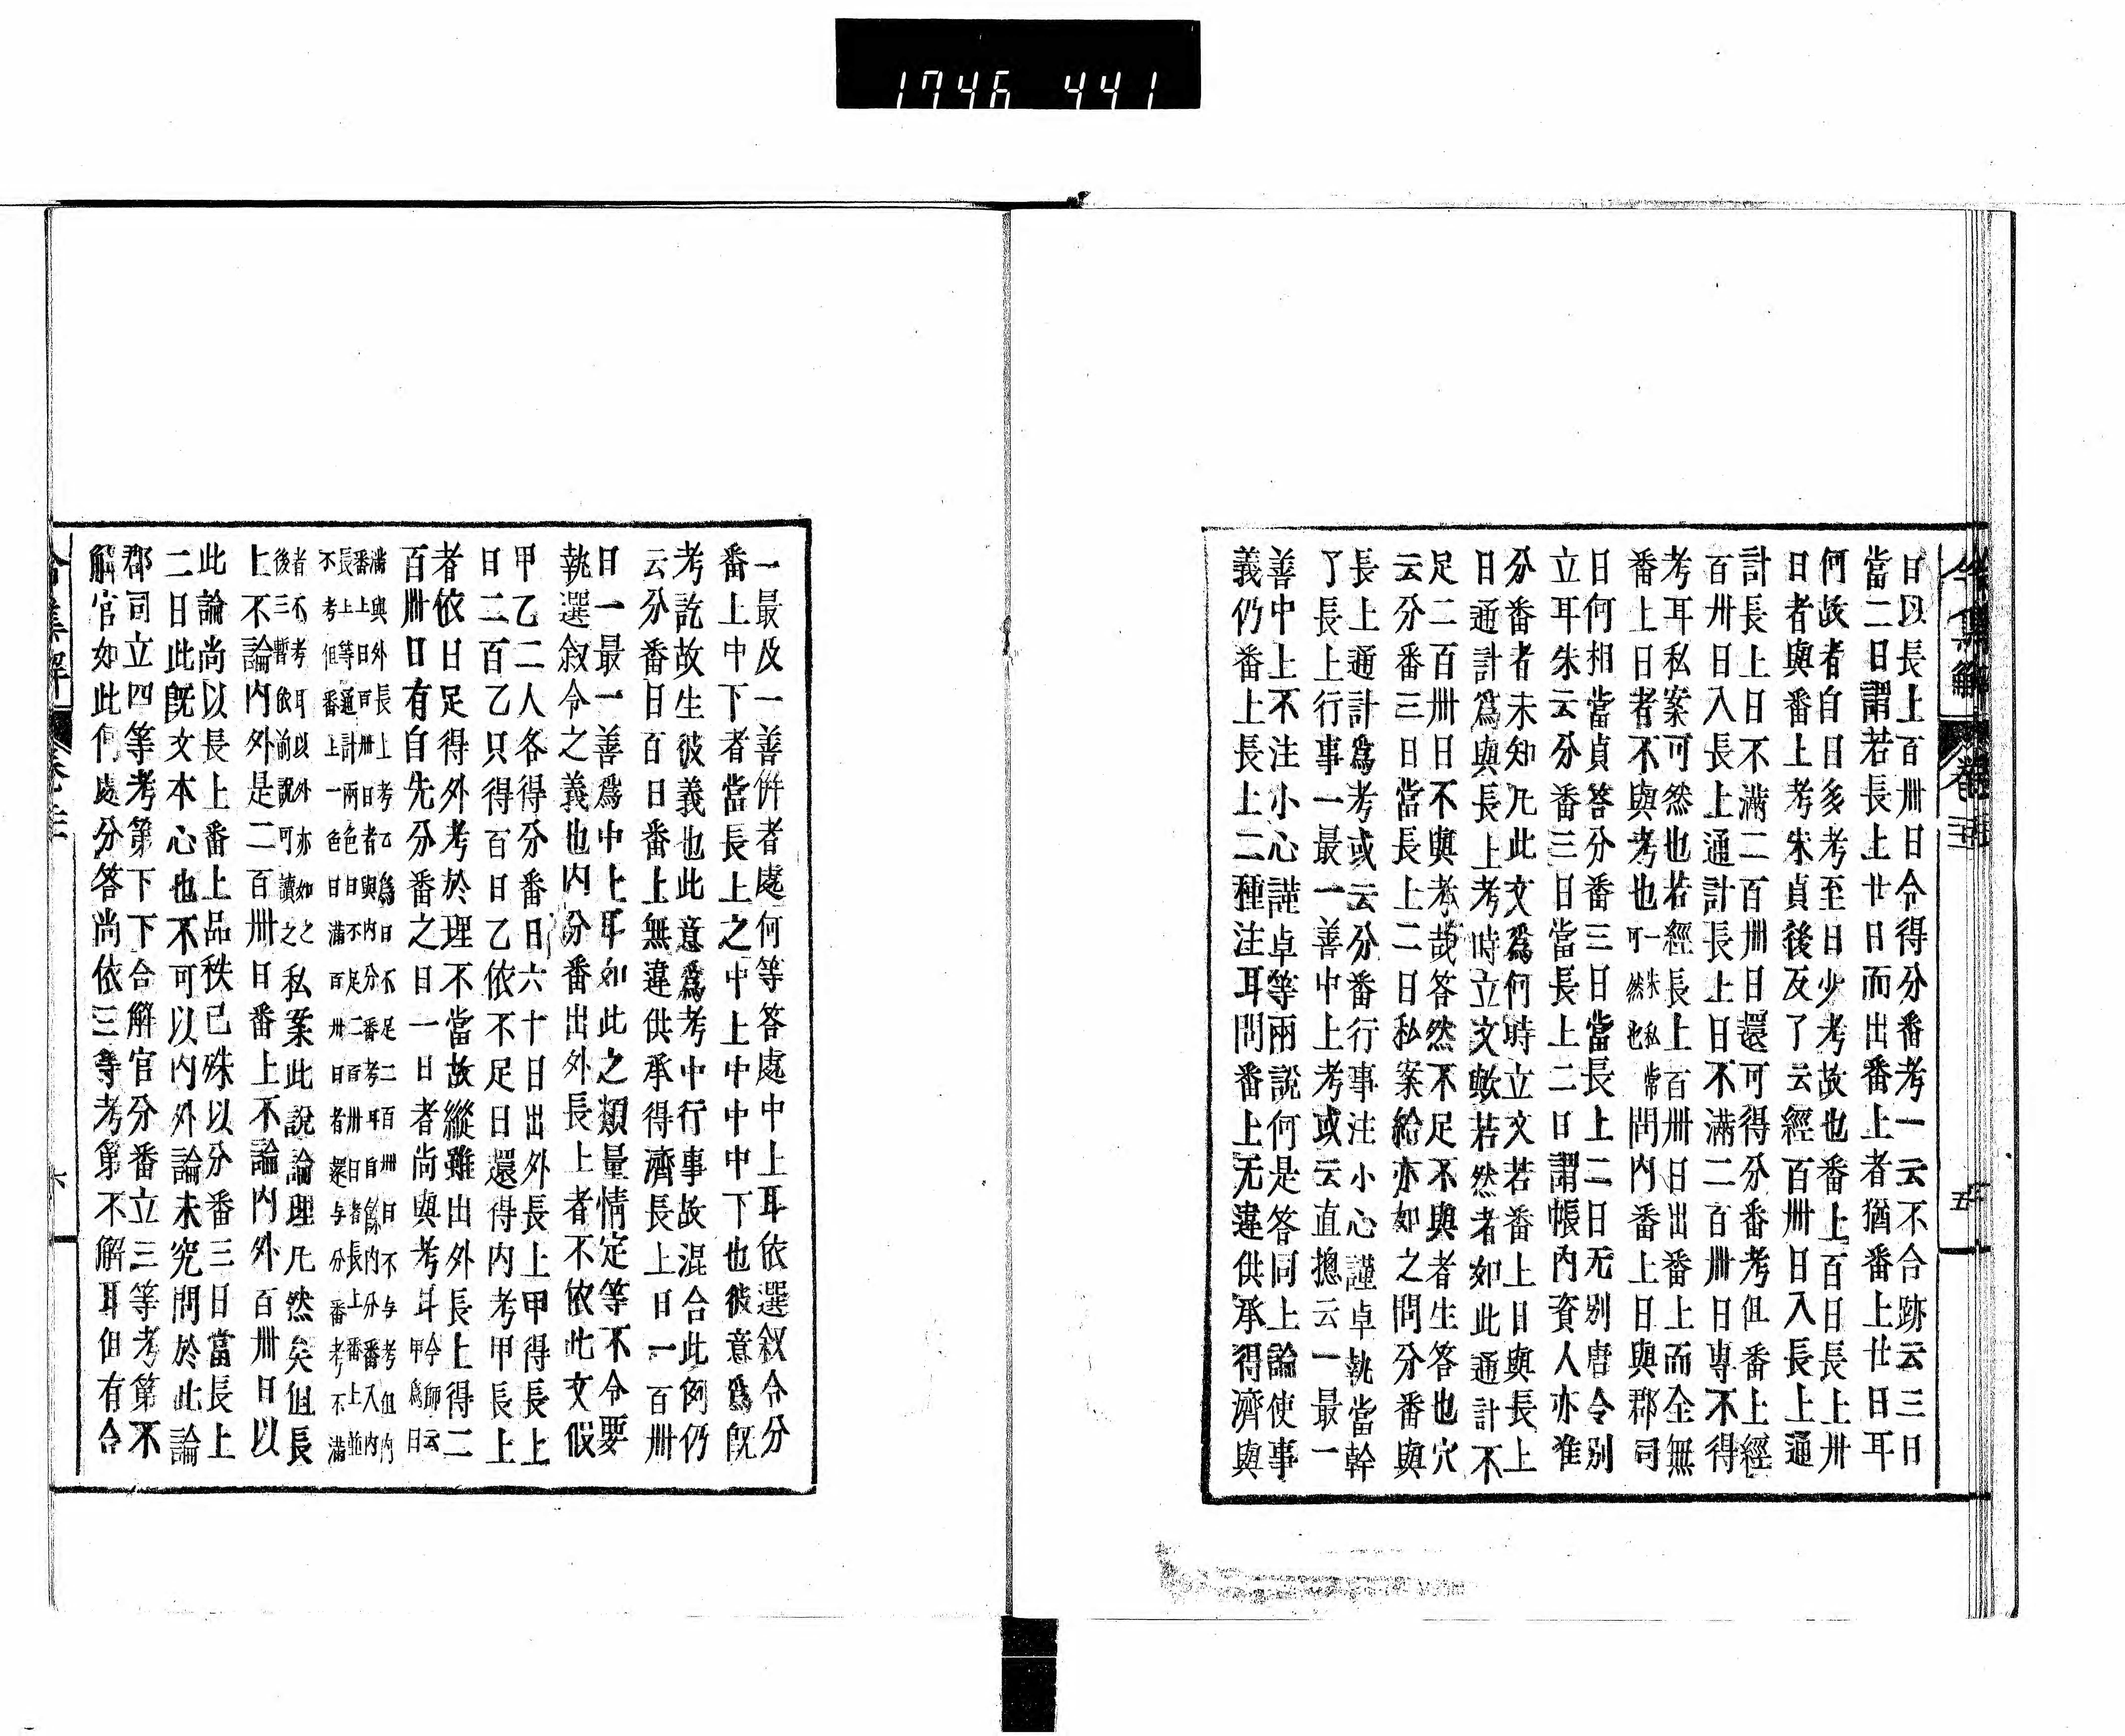 1746 441
日以長上百卌日令得分番考一云不合跡云三日
當二日謂若長上廿日而出番上者猶番上廿日耳
何故者自日多考至日少考故也番上百日長上卌
日者與番上考朱貞後反了云經百卌日入長上通
計長上日不滿二百卌日還可得分番考但番上經
百卌日入長上通計長上日不滿二百卌日專不得
考耳私案可然也若經長上百卌日出番上而全無
番上日者不與考也一朱私可然也常問內番上日與郡司
日何相當貞答分番三日當長上二日无別唐令別
立耳朱云分番三日當長上二日謂帳內資人亦准
分番者未知凡此文爲何時立文若番上日與長上
日通計爲與長上考時立文歟若然者如此通計不
足二百卌日不與考哉答然不足不與者生答也穴
云分番三日當長上二日私案給亦如之問分番與
長上通計爲考或云分番行事注小心謹卓執當幹
了長上行事一最一善中上考或云直摠云一最一
善中上不注小心謹卓等兩說何是答同上論使事
義仍番上長上二種注耳問番上无違供承得濟與
一最及一善併者處何等答處中上耳依選叙令分
番上中下者當長上之中上中中中下也彼意爲既
考訖故生彼義也此意爲考中行事故混合此例仍
云分番日百日番上無違供承得濟長上日一百卌
日一最一善爲中上耳如此之類量情定等不令要
執選叙令之義也內分番出外長上者不依此文假
甲乙二人各得分番日六十日出外長上甲得長上
日二百乙只得百日乙依不足日還得內考甲長上
者依日足得外考於理不當故縱雖出外長上得二
百卌日有自先分番之日一日者尚與考耳令師云甲爲日
滿與外長上考乙爲日不足二百卌日不与考但內
番上日百卌日者與內分番考耳自餘內分番入內
長上等通計兩色日不足二百卌日者長上番上並
不考但番上一色日滿百卌日者還与分番考不滿
者不考耳以外亦如之
後三暫依前說可讀之私案此說論理凡然矣但長
上不論內外是二百卌日番上不論內外百卌日以
此論尚以長上番上品秩已殊以分番三日當長上
二日此既文本心也不可以內外論未究問於此論
郡司立四等考第下下合解官分番立三等考第不
解官如此何處分答尚依三等考第不解耳但有合